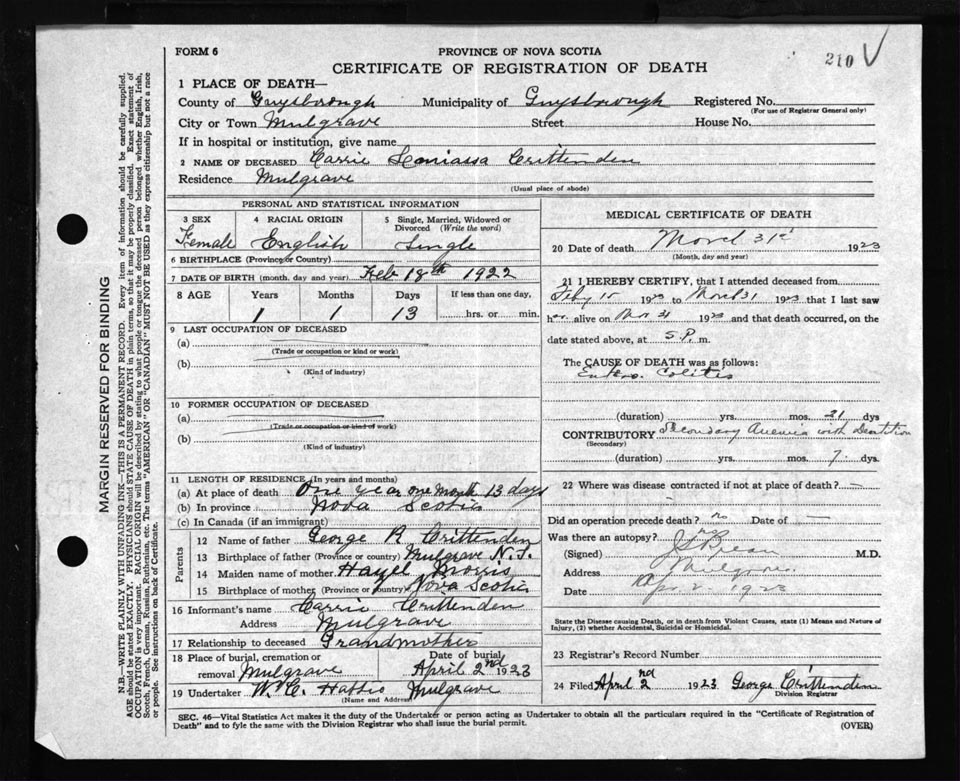 FORM 6
PROVINCE OF NOVA SCOTIA
210
CERTIFICATE OF REGISTRATION OF DEATH
1 PLACE OF DEATH—
County of Guysborough Municipality of Guysborough Registered No.
(For use of Registrar General only)
City or Town Mulgrave Street House No.
If in hospital or institution, give name
2 NAME OF DECEASED Carrie Crittenden
Residence Mulgrave
(Usual place of abode)
PERSONAL AND STATISTICAL INFORMATION
3 SEX 4 RACIAL ORIGIN 5 Single, Married, Widowed or Divorced (Write the word)
Female English Single
6 BIRTHPLACE (Province or Country)
7 DATE OF BIRTH (month, day and year) Feb 18th 1922
8 AGE Years Months Days If less than one day,
1 1 13 hrs. or min.
9 LAST OCCUPATION OF DECEASED
(a)
(Trade or occupation or kind or work)
(b)
(Kind of industry)
10 FORMER OCCUPATION OF DECEASED
(a)
(Trade or occupation or kind of work)
(b)
(Kind of industry)
11 LENGTH OF RESIDENCE (In years and months)
(a) At place of death One year one month 13 days
(b) In province Nova Scotia
(c) In Canada (if an immigrant)
Parents
12 Name of father George R Crittenden
13 Birthplace of father (Province or country) Mulgrave N.S.
14 Maiden name of mother Hazel Morris
15 Birthplace of mother (Province or country) Nova Scotia
16 Informant's name Carrie Crittenden
Address Mulgrave
17 Relationship to deceased Grandmother
18 Place of burial, cremation or removal Mulgrave Date of burial April 2nd 1923
19 Undertaker W. C. Mulgrave
(Name and Address)
MEDICAL CERTIFICATE OF DEATH
20 Date of death March 31st 1923
(Month, day and year)
21 I HEREBY CERTIFY, that I attended deceased from
Feby 10 1923 to March 31 1923 that I last saw
her alive on Mar 31 1923 and that death occurred, on the
date stated above, at 5 P. m.
The CAUSE OF DEATH was as follows:
Entero Colitis
(duration) yrs. mos. 21 dys
CONTRIBUTORY Secondary Anemia with Dentition
(Secondary)
(duration) yrs. mos. 7 dys.
22 Where was disease contracted if not at place of death? —
Did an operation precede death? no Date of —
Was there an autopsy? no
(Signed) M.D.
Address Mulgrave
Date Apr. 2. 1923
State the Disease causing Death, or in death from Violent Causes, state (1) Means and Nature of
Injury, (2) whether Accidental, Suicidal or Homicidal.
23 Registrar's Record Number
24 Filed April 2nd 1923 George Crittenden
Division Registrar
SEC. 46—Vital Statistics Act makes it the duty of the Undertaker or person acting as Undertaker to obtain all the particulars required in the "Certificate of Registration of
Death" and to fyle the same with the Division Registrar who shall issue the burial permit.
(OVER)
MARGIN RESERVED FOR BINDING
N.B.—WRITE PLAINLY WITH UNFADING INK—THIS IS A PERMANENT RECORD. Every item of information should be carefully supplied.
AGE should be stated EXACTLY. PHYSICIANS should STATE CAUSE OF DEATH in plain terms, so that it may be properly classified. Exact statement of
OCCUPATION is very important. RACIAL ORIGIN will be described by stating to what people or tongue the deceased person belonged, whether English, Irish,
Scotch, French, German, Russian, Ruthenian, etc. The terms "AMERICAN" OR "CANADIAN" MUST NOT BE USED as they express citizenship but not a race
or people. See instructions on back of Certificate.